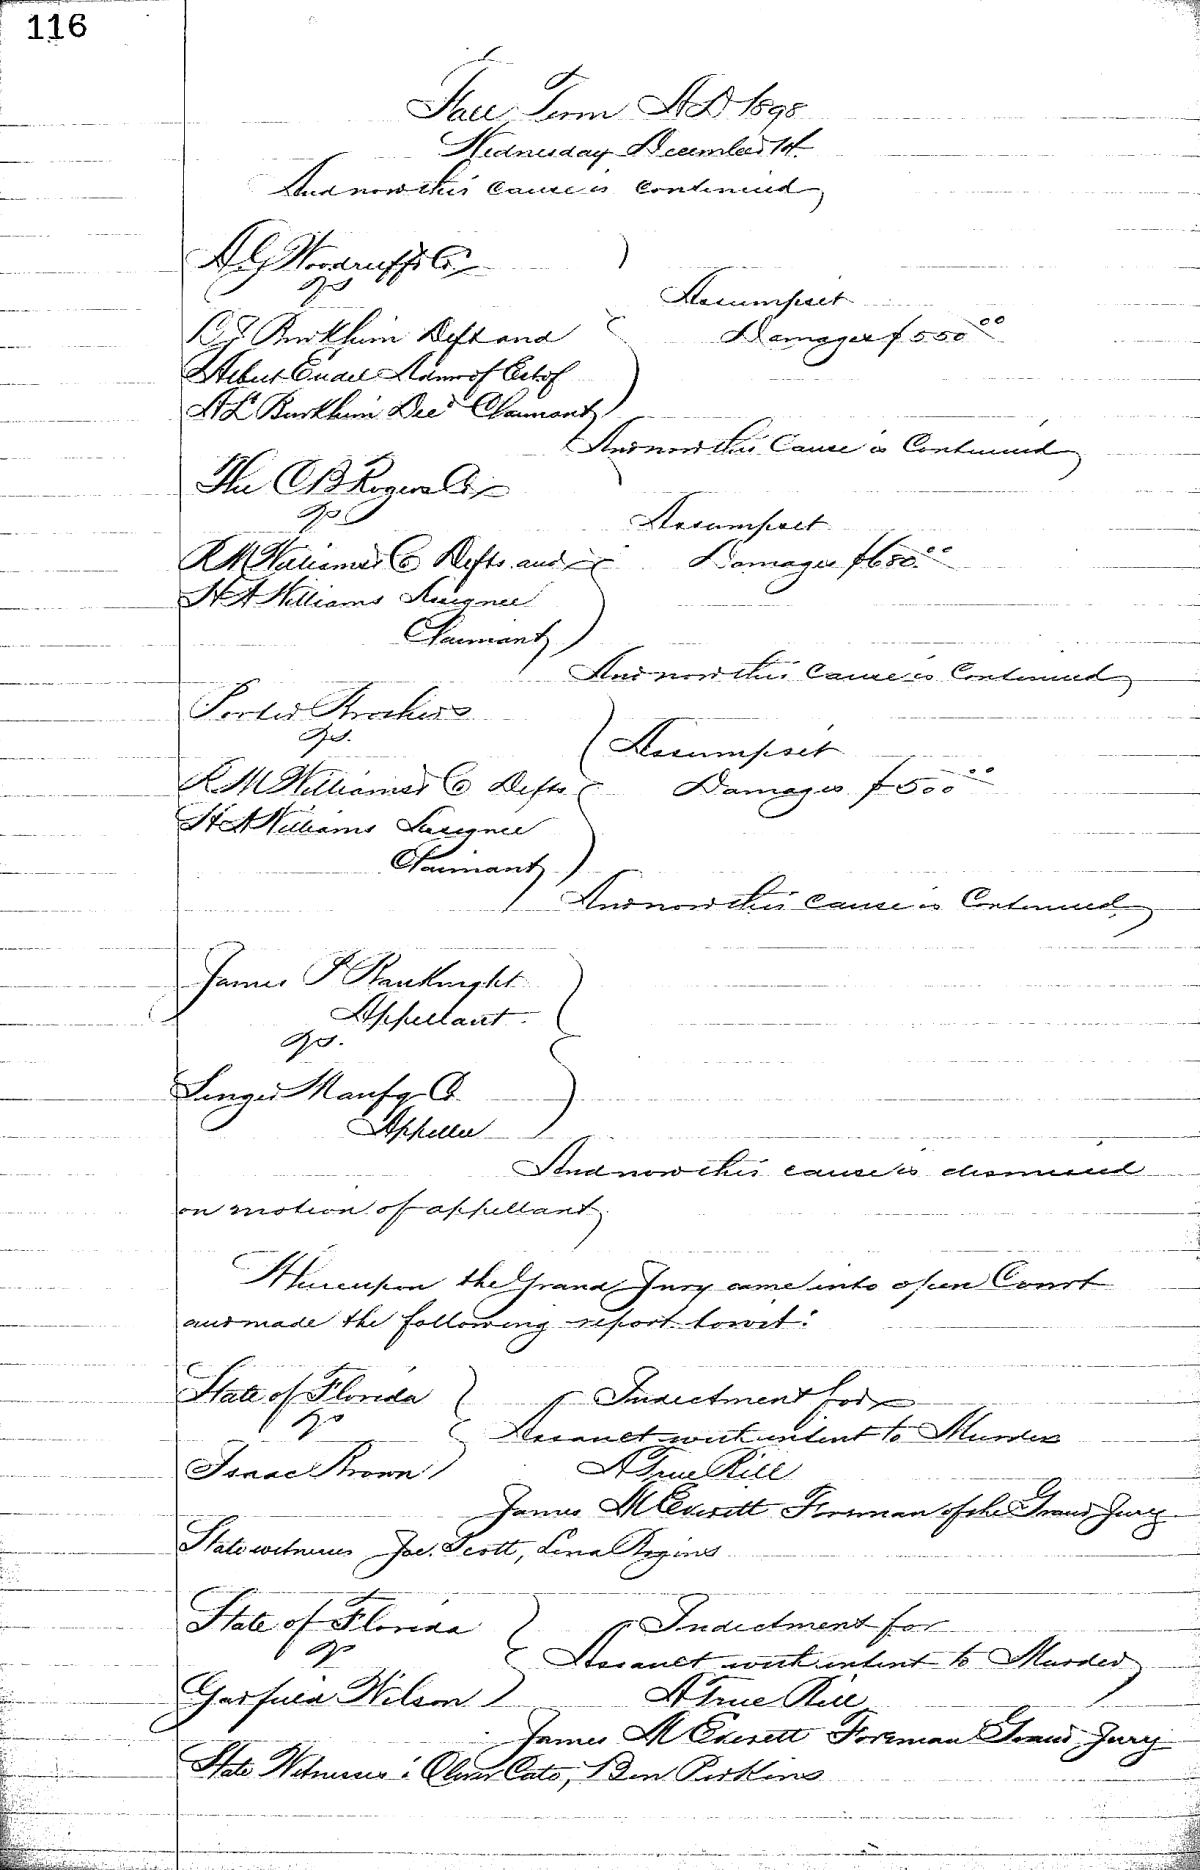 116
Fall Term AD 1898
Wednesday December 14.
And now this cause is continued
A G Woodruff & Co
vs
Burkhim Deft and
Albert Endel Admr of Est of
A L Burkhim Decd Claimant
Assumpsit
Damages $550 00
And now this Cause is Continued
The C B Rogers Co
vs
R M Williams & Co Defts and
H A Williams Assignee
Claimant
Assumpsit
Damages $680.00
And now this cause is Continued
Porter Brothers
vs.
R M Williams & Co Defts
H A Williams Assignee
Claimant
Assumpsit
Damages $500 00
And now this cause is Continued
James F Bauknight
Appellant.
vs.
Singer Manfg Co.
Appellee
And now this cause is dismissed
on motion of appellant.
Whereupon the Grand Jury came into open Court
and made the following report towit:
State of Florida
vs
Isaac Brown
Indictment for
Assault with intent to Murder
A True Bill
James M Everett Foreman of the Grand Jury
State witnesses Joe. Scott, Lena
State of Florida
vs
Garfield Wilson
Indictment for
Assault with intent to Murder
A True Bill
James M Everett Foreman Grand Jury
State Witnesses: Oliver Cato, Ben Perkins